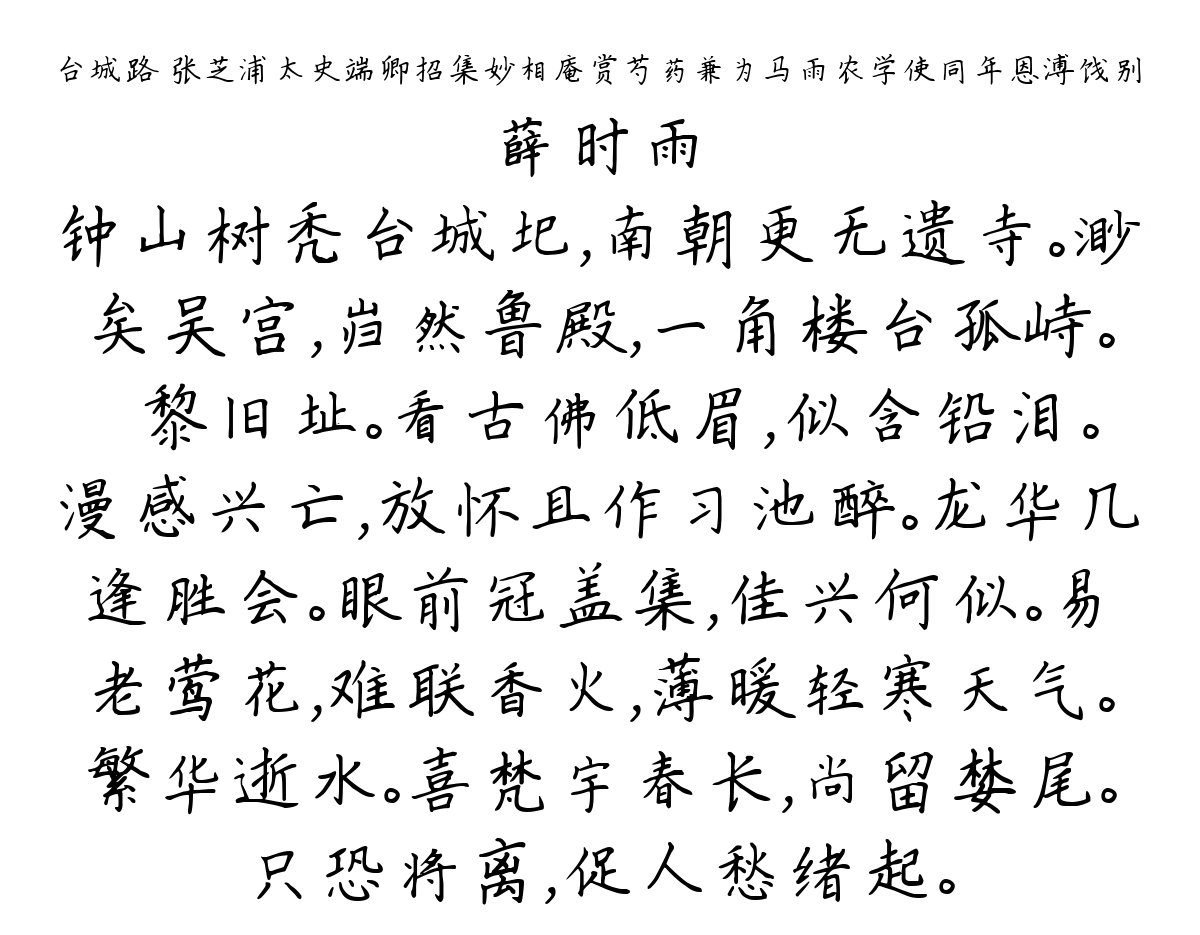 台城路 张芝浦太史端卿招集妙相庵赏芍药兼为马雨农学使同年恩溥饯别
薛时雨
钟山树秃台城圯,南朝更无遗寺。渺
矣吴宫,岿然鲁殿,一角楼台孤峙。
黎旧址。看古佛低眉,似含铅泪。
漫感兴亡,放怀且作习池醉。龙华几
逢胜会。眼前冠盖集,佳兴何似。易
老莺花,难联香火,薄暖轻寒天气。
繁华逝水。喜梵宇春长,尚留婪尾。
只恐将离,促人愁绪起。